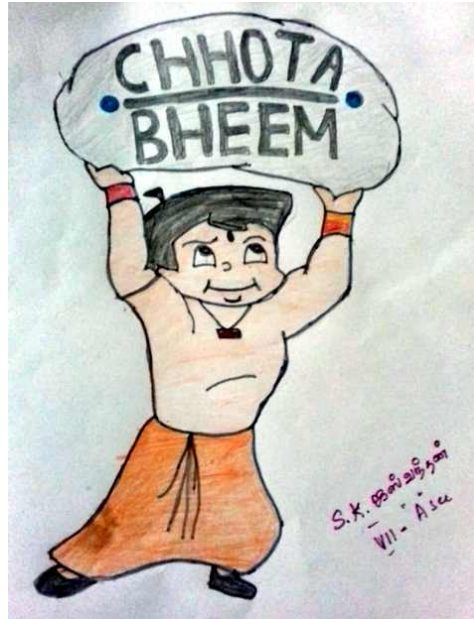 CHHOTA
BHEEM
S.K. ஜஸ்வந்தன்
VII - A sec